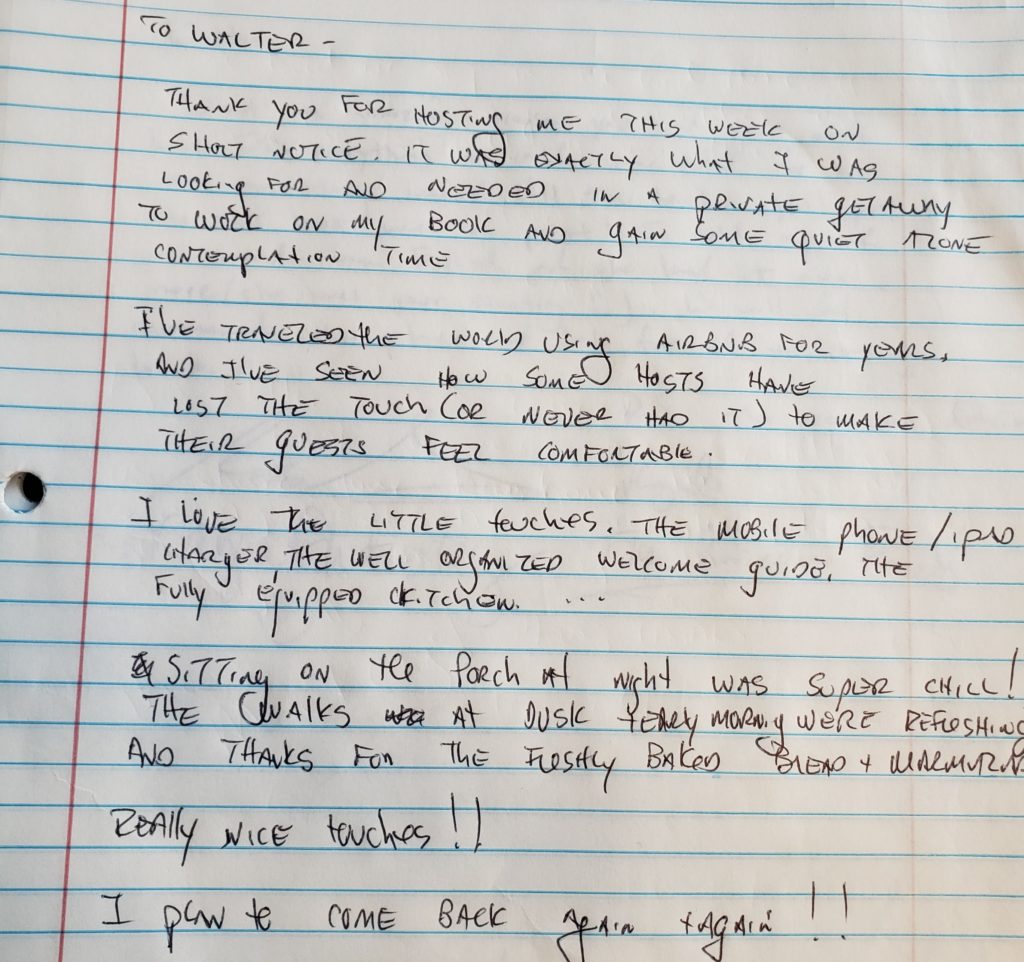 TO WALTER -
THANK YOU FOR HOSTING ME THIS WEEK ON
SHORT NOTICE. IT WAS EXACTLY WHAT I WAS
LOOKING FOR AND NEEDED IN A PRIVATE GETAWAY
TO WORK ON MY BOOK AND GAIN SOME QUIET ALONE
CONTEMPLATION TIME
I'VE TRAVELED the WORLD USING AIRBNB FOR YEARS,
AND I'VE SEEN HOW SOME HOSTS HAVE
LOST THE TOUCH (OR NEVER HAD IT) to MAKE
THEIR GUESTS FEEL COMFORTABLE.
I LOVE THE LITTLE touches. THE MOBILE PHONE/IPAD
CHARGER, THE WELL ORGANIZED WELCOME GUIDE, THE
FULLY EQUIPPED KITCHEN. ...
SITTING ON the PORCH At night WAS SUPER CHILL!
THE WALKS AT DUSK + EARLY MORNING WERE REFRESHING
AND THANKS FOR THE FRESHLY BAKED BREAD +
REALLY NICE touches!!
I PLAN to COME BACK AGAIN + AGAIN!!